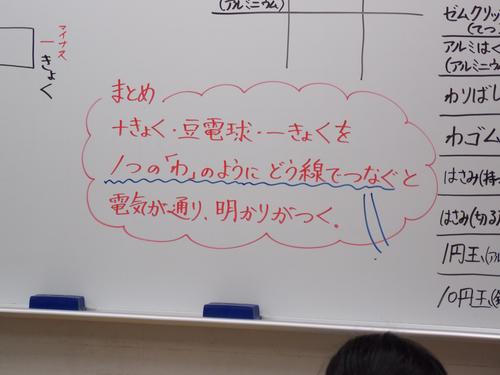 (アルミニウム)
マイナス
ーきょく
まとめ
+きょく・豆電球・ーきょくを
1つの「わ」のように どう線でつなぐと
電気が通り、明かりがつく。
ゼムクリッ
(てつ
アルミはく
(アルミニウム
わりばし
わゴム
はさみ(持
はさみ(切る
1円玉(アル
10円玉